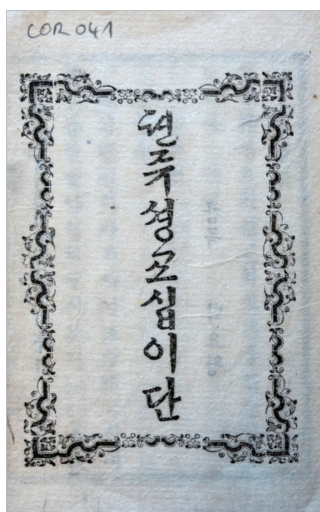 COR 041
텬쥬셩교십이단